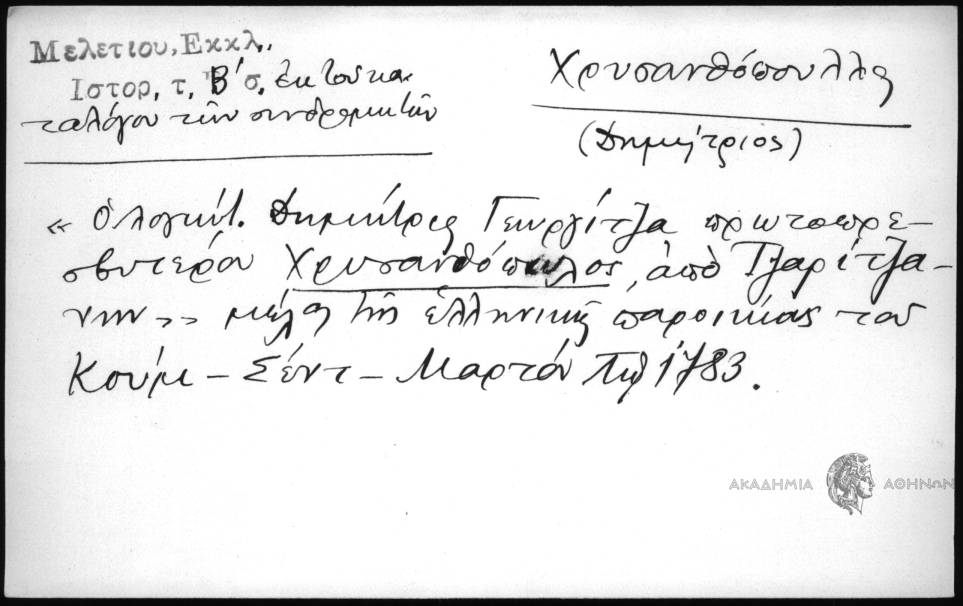 Μελετιου, Εκκλ.,
Ιστορ, τ, Β' σ, ἐκ τοῦ κα-
ταλόγου τῶν συνδρομητῶν
Χρυσανθόπουλλος
(Δημήτριος)
« ὁ λογιώτ. Δημήτριος Γεωργίτζα πρωτοπρε-
σβυτέρου Χρυσανθόπουλος, ἀπὸ Τζαρίτζα-
νην» μέλος τῆς ἑλληνικῆς παροικίας τοῦ
Κούμ - Σέντ - Μαρτόν 1783.
ΑΚΑΔΗΜΙΑ ΑΘΗΝΩΝ